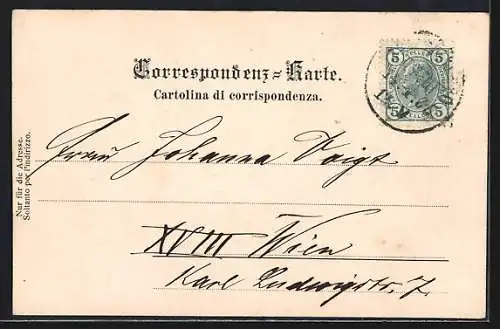 Correspondenz-Karte.
Cartolina di corrispondenza.
Nur für die Adresse.
Soltanto por l'indirizzo.
5 5
5 5
Johanna Voigt
XVIII Wien
Karl Ludwigstr. 7